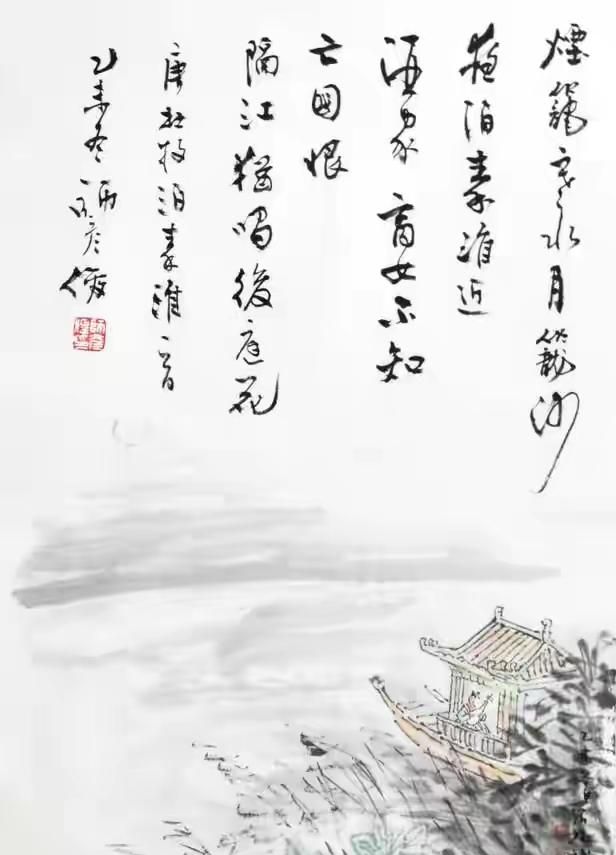 煙籠寒水月籠沙
夜泊秦淮近
酒家商女不知
亡国恨
隔江猶唱後庭花
唐杜牧泊秦淮一首
乙未冬